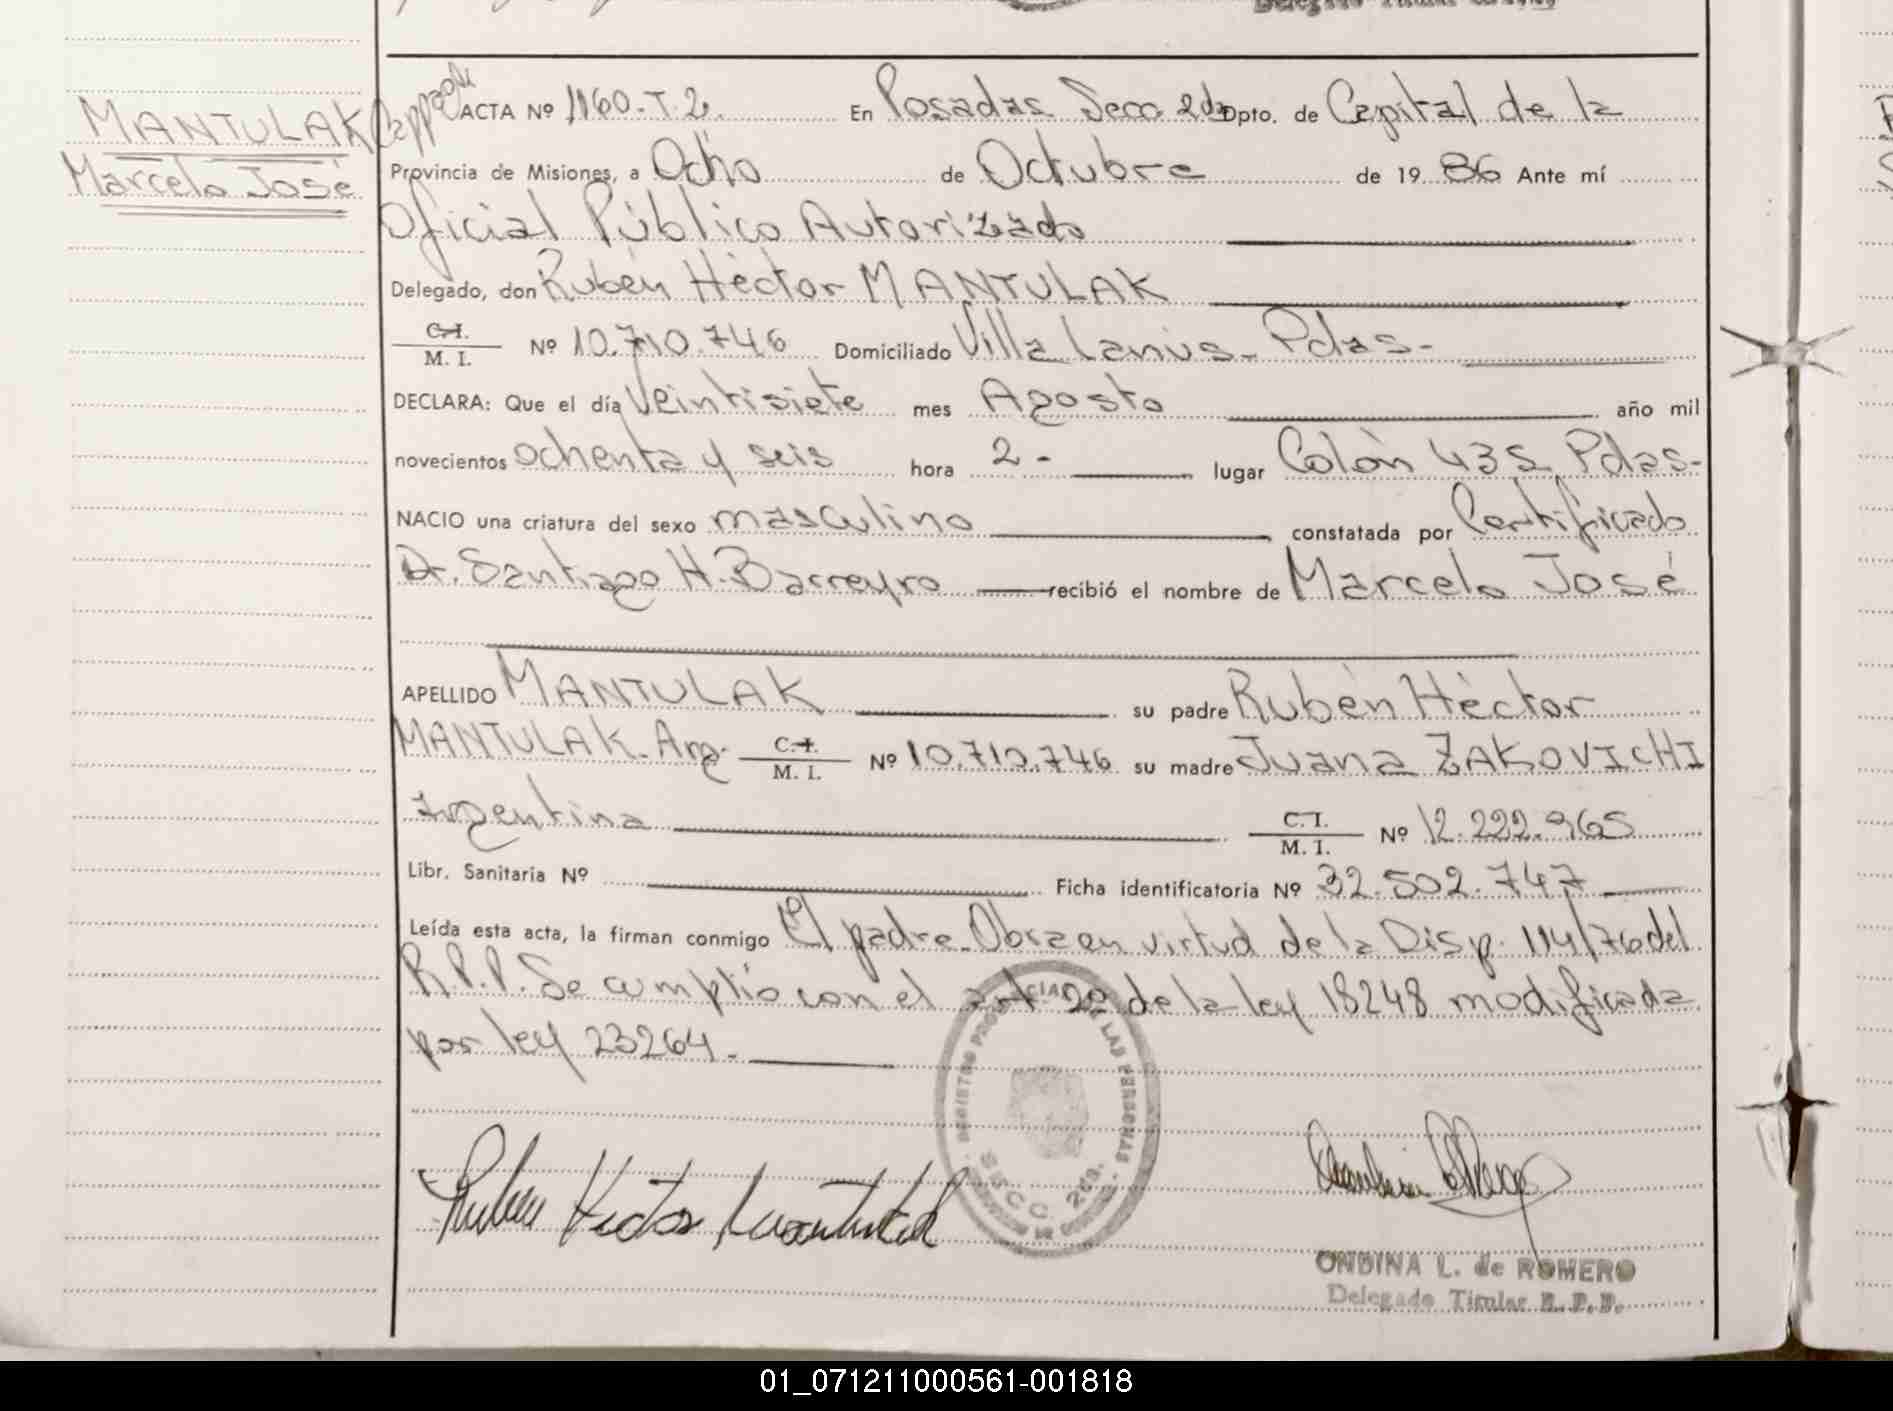 Delegado Titular
MANTULAK
Marcelo José
ACTA Nº 1160-T.2. En Posadas Secc. 2da Dpto. de Capital de la
Provincia de Misiones, a Ocho de Octubre de 19 86 Ante mí
Oficial Público Autorizado
Delegado, don Rubén Héctor MANTULAK
C.I.
M. I. Nº 10.710.746 Domiciliado Villa Lanus- Pdas-
DECLARA: Que el día Veintisiete mes Agosto año mil
novecientos ochenta y seis hora 2- lugar Colón 435 Pdas-
NACIO una criatura del sexo masculino constatada por Certificado
Dr. Santiago H. Barreyro recibió el nombre de Marcelo José
APELLIDO MANTULAK su padre Rubén Héctor
MANTULAK- Arg- C.I. M. I. Nº 10.710.746 su madre Juana ZAKOVICHI
argentina C.I. M. I. Nº 12.222.965
Libr. Sanitaria Nº Ficha identificatoria Nº 32.502.747
Leída esta acta, la firman conmigo El padre- Obra en virtud de la Disp. 114/76 del
R.P.P. Se cumplió con el art 20 de la ley 18248 modificada
por ley 23264.-
REGISTRO PROVINCIAL DE LAS PERSONAS
SECC. 2da.
Ruben Hector Mantulak
ONDINA L. de ROMERO
Delegado Titular R.P.P.
01_071211000561-001818